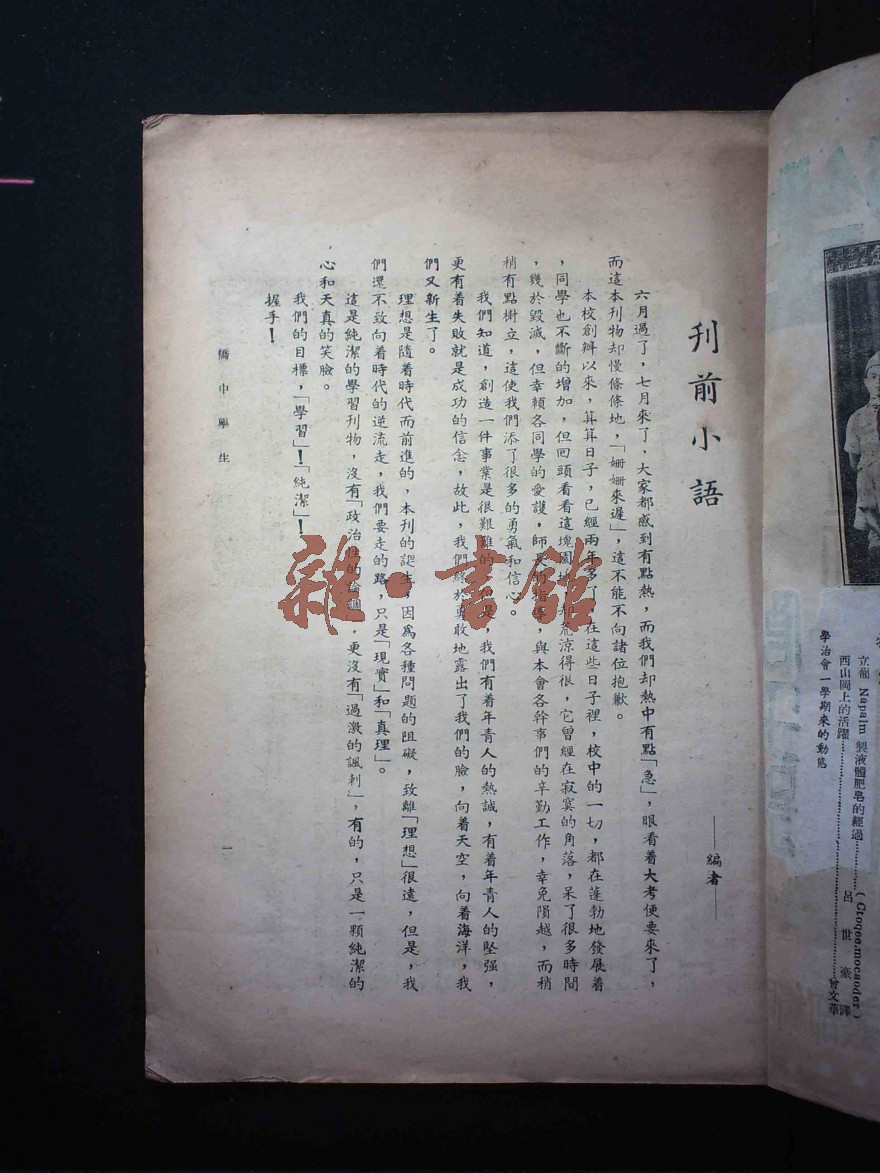 刊前小語
——編者——
六月過了，七月來了，大家都感到有點熱，而我們却熱中有點「急」，眼看着大考便要來了，
而這本刊物却慢條條地，「姍姍來遲」，這不能不向諸位抱歉。
本校創辦以來，算算日子，已經兩年多了，在這些日子裡，校中的一切，都在蓬勃地發展着
，同學也不斷的增加，但回頭看看這塊園地，却荒涼得很，它曾經在寂寞的角落，呆了很多時間
，幾於毀滅，但幸賴各同學的愛護，師長的指導，與本會各幹事們的辛勤工作，幸免隕越，而稍
稍有點樹立，這使我們添了很多的勇氣和信心。
我們知道，創造一件事業是很艱難的，但是，我們有着年青人的熱誠，有着年青人的堅强，
更有着失敗就是成功的信念，故此，我們終於勇敢地露出了我們的臉，向着天空，向着海洋，我
們又新生了。
理想是隨着時代而前進的，本刊的誕生，因爲各種問題的阻礙，致離「理想」很遠，但是，我
們還不致向着時代的逆流走，我們要走的路，只是「現實」和「真理」。
這是純潔的學習刊物，沒有「政治性的論調」，更沒有「過激的諷刺」，有的，只是一顆純潔的
心和天真的笑臉。
我們的目標，「學習」！「純潔」！
握手！
僑中學生
一
雜·書館
立龍 Napalm 製液體肥皂的經過…………（Ctoqee.mocaoder）呂世豪譯
西山岡上的活躍…………曾文華
學治會一學期來的動態